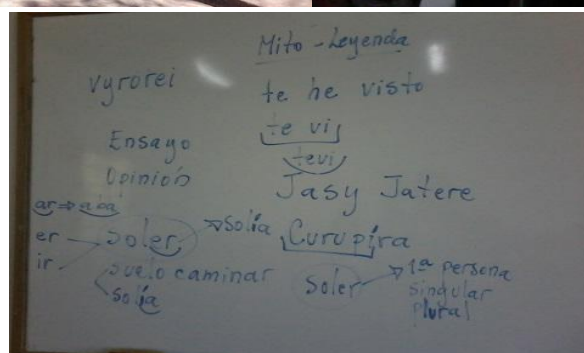 Mito - Leyenda
vyrorei
te he visto
te vi
tevi
Ensayo
Opinión
Jasy Jatere
ar ⇒ aba
er
ir
Soler
solía
Curupíra
suelo caminar
solía
Soler
1ª persona
singular
plural